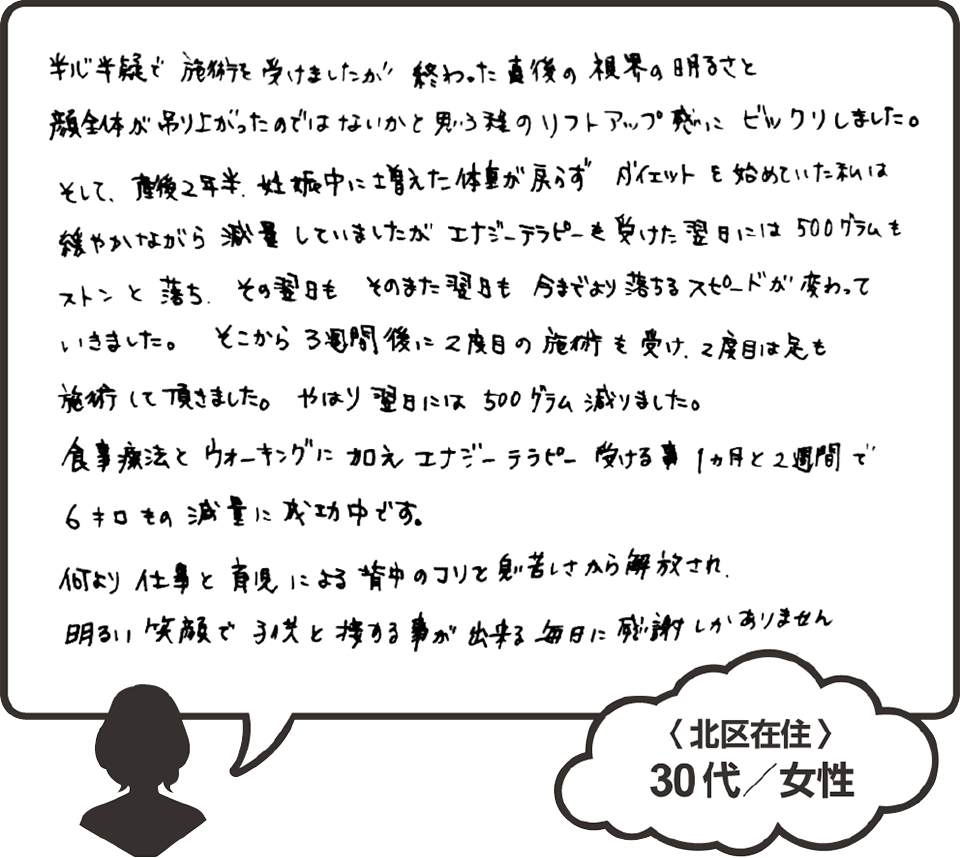 半心半疑で 施術を受けましたが 終わった直後の視界の明るさと
顔全体が吊り上がったのではないかと思う程のリフトアップ感に ビックリしました。
そして、産後2年半、妊娠中に増えた体重が戻らず ダイエットを始めていた私は
緩やかながら減量していましたが エナジーテラピーを受けた翌日には 500グラムも
ストンと落ち、その翌日も そのまた翌日も 今までより落ちるスピードが変わって
いきました。 そこから3週間後に2度目の施術も受け、2度目は足も
施術して頂きました。 やはり翌日には500グラム減りました。
食事療法とウォーキングに加えエナジーテラピー受ける事1ヵ月と2週間で
6キロもの減量に成功中です。
何より仕事と育児による背中のコリと息苦しさから解放され、
明るい笑顔で子供と接する事が出来る毎日に感謝しかありません
〈北区在住〉
30代／女性